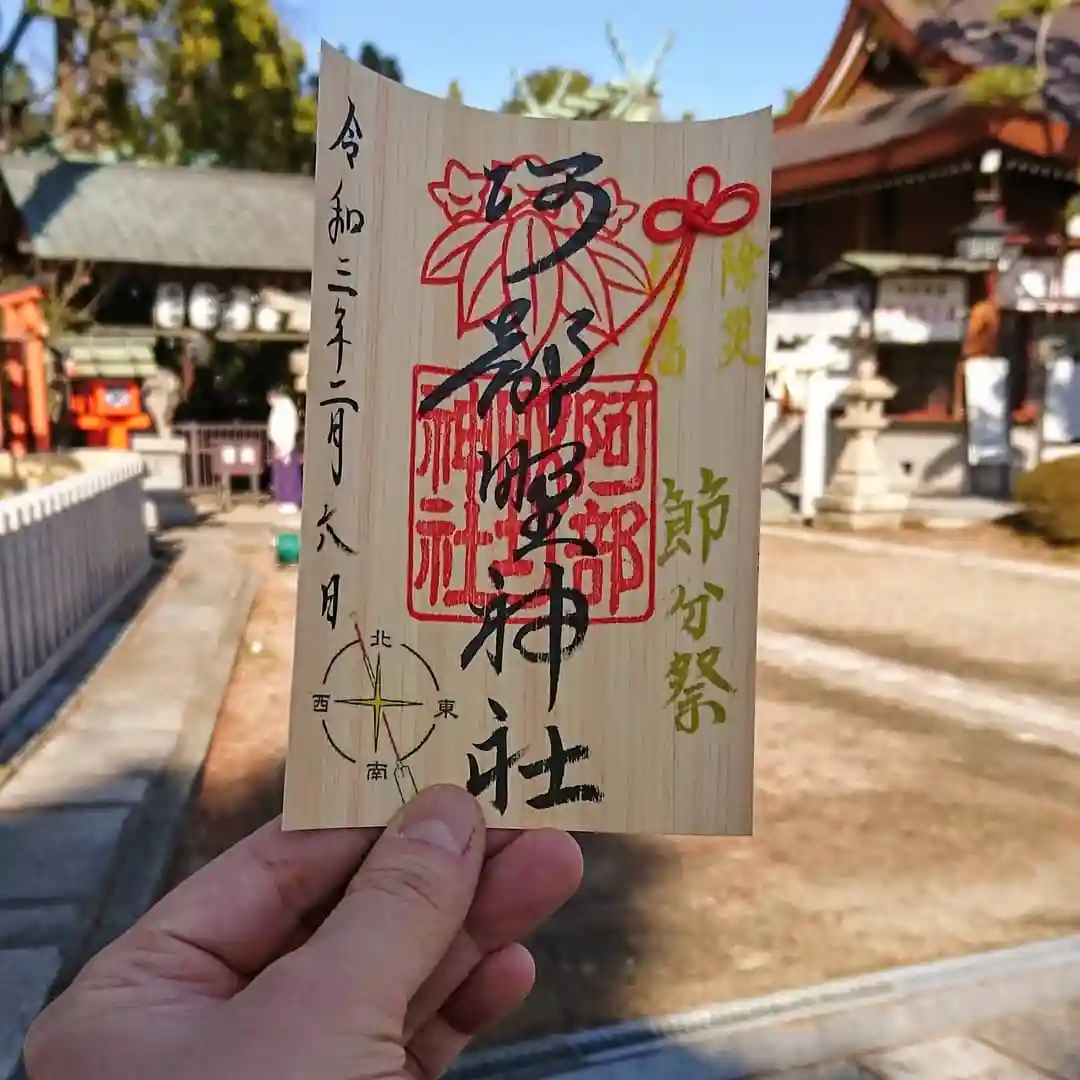 除災
節分祭
阿部野神社
阿部
神社
令和三年二月六日
北
西
東
南